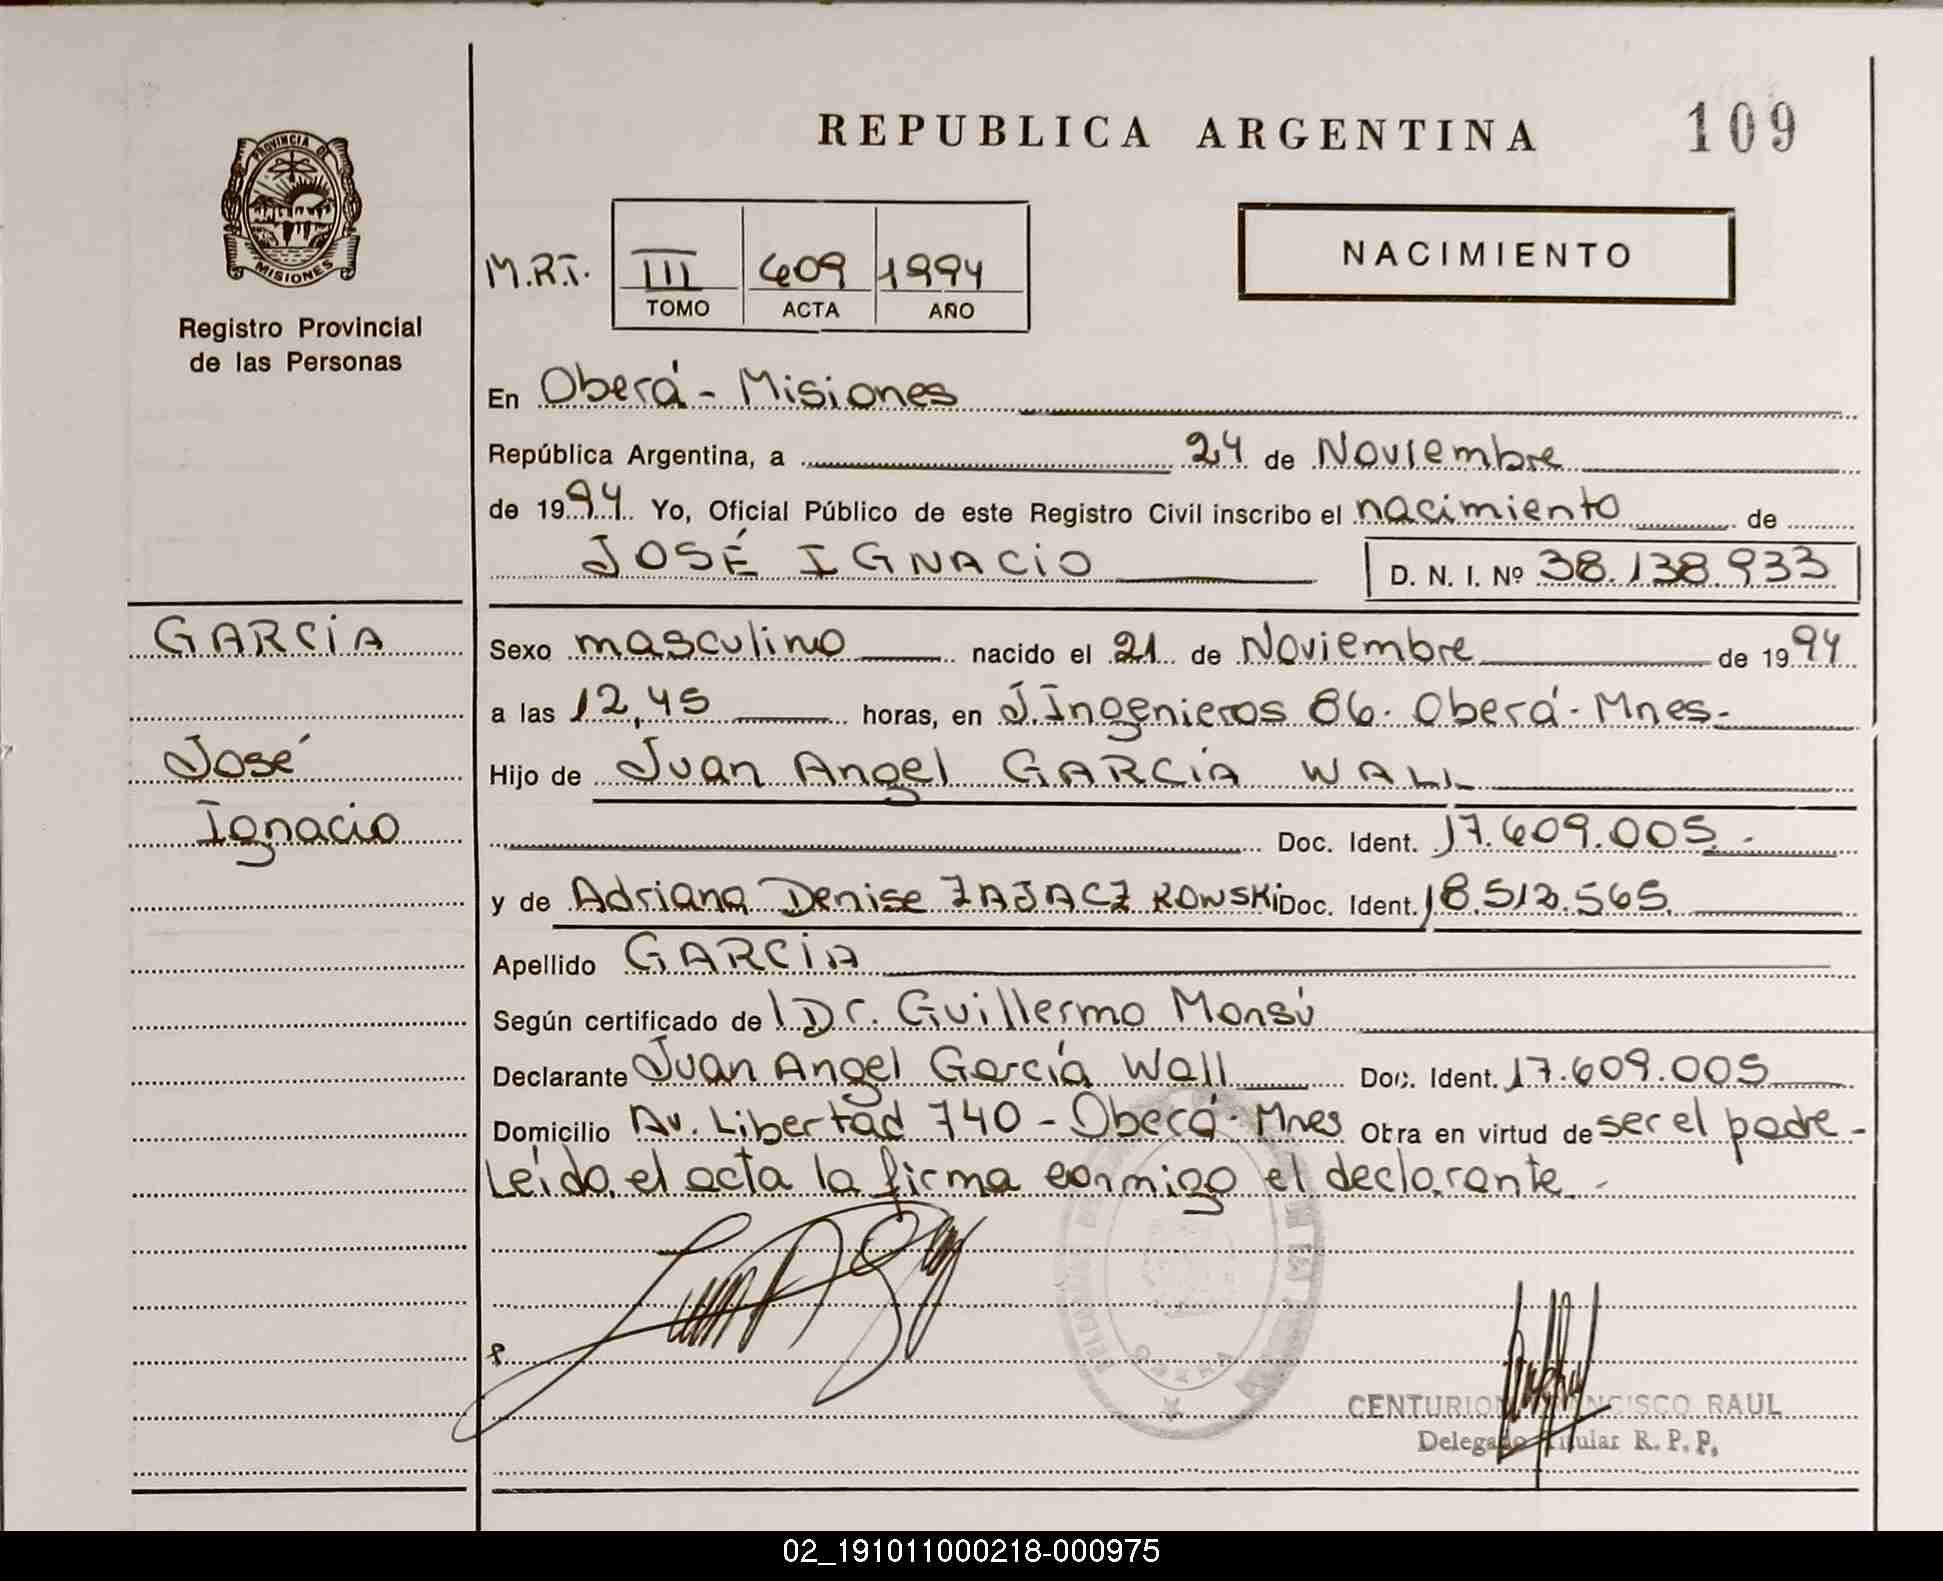 REPUBLICA ARGENTINA
109
PROVINCIA DE
MISIONES
Registro Provincial
de las Personas
NACIMIENTO
M.R.T. III 609 1994
TOMO ACTA AÑO
En Oberá - Misiones
República Argentina, a 24 de Noviembre
de 1994 Yo, Oficial Público de este Registro Civil inscribo el nacimiento de
JOSÉ IGNACIO D. N. I. Nº 38.138.933
GARCÍA
José
Ignacio
Sexo masculino nacido el 21 de Noviembre de 1994
a las 12,45 horas, en J. Ingenieros 86. Oberá - Mnes.
Hijo de Juan Angel GARCÍA WALL
Doc. Ident. 17.609.005.-
y de Adriana Denise ZAJACZKOWSKI Doc. Ident. 18.512.565
Apellido GARCÍA
Según certificado del Dr. Guillermo Monsú
Declarante Juan Angel García Wall Doc. Ident. 17.609.005
Domicilio Av. Libertad 740 - Oberá - Mnes Obra en virtud de ser el padre -
Leída el acta la firma conmigo el declarante.-
OBERA
CENTURION FRANCISCO RAUL
Delegado Titular R. P. P.
02_191011000218-000975